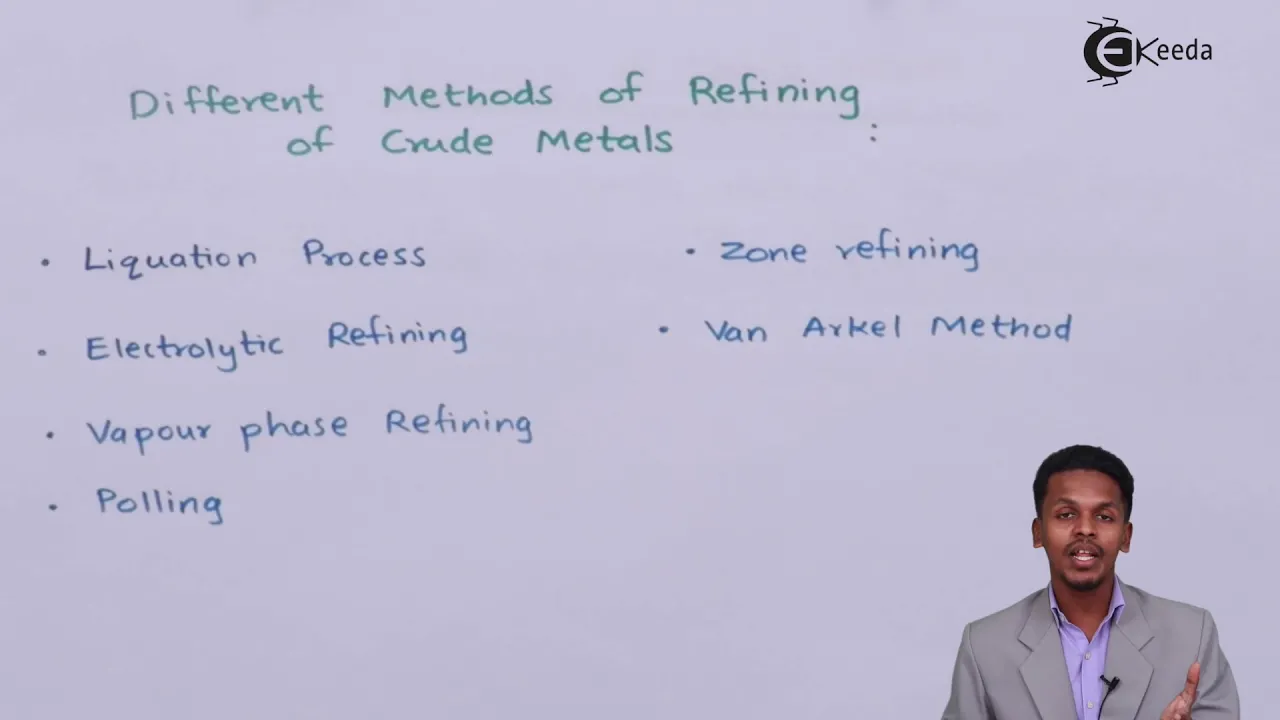 Ekeeda
Different Methods of Refining
of Crude Metals :
• Liquation Process
• Electrolytic Refining
• Vapour phase Refining
• Polling
• Zone refining
• Van Arkel Method